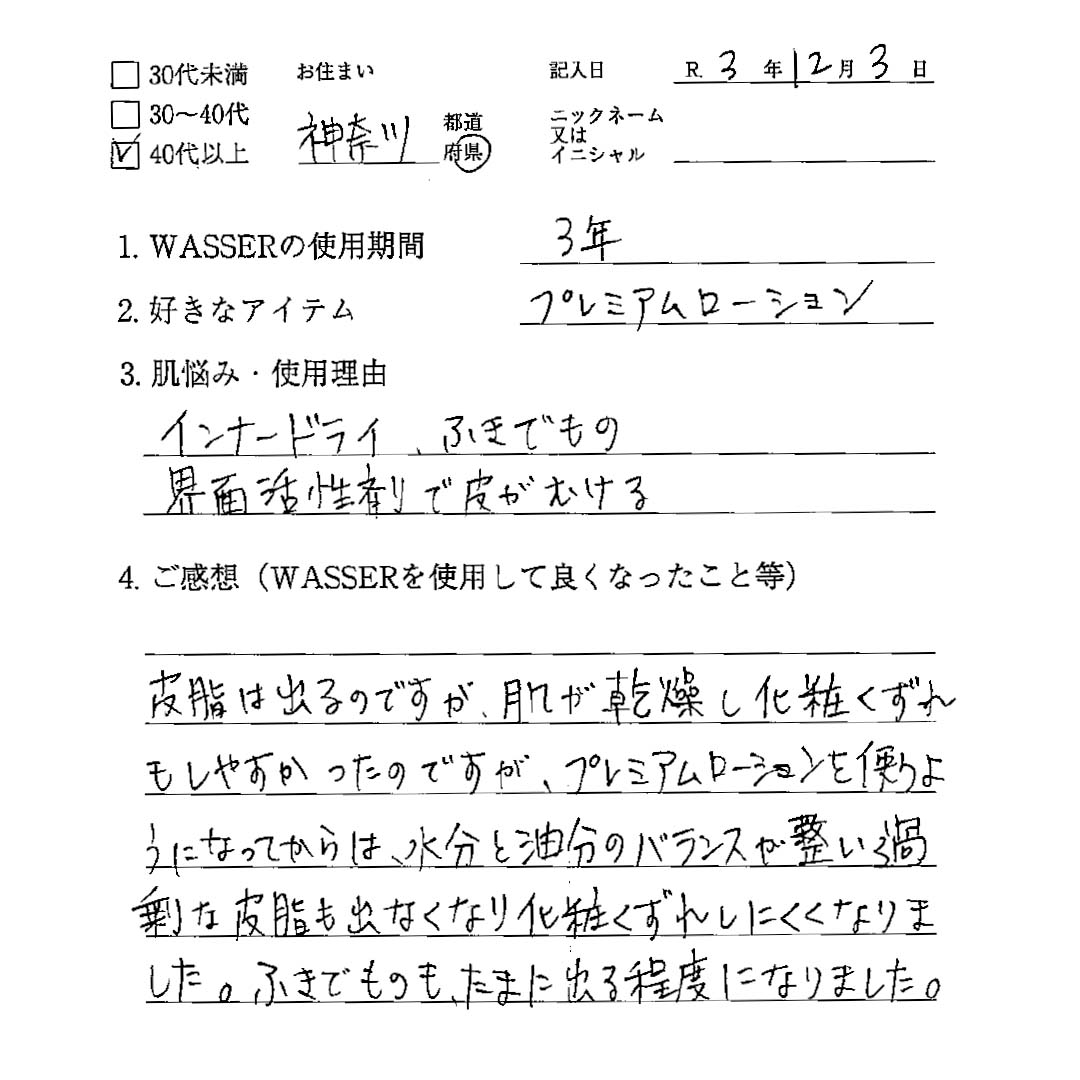 □ 30代未満 お住まい 記入日 R. 3 年 12 月 3 日
□ 30〜40代 神奈川 都道 ニックネーム
又は
☑ 40代以上 府県 イニシャル
1. WASSERの使用期間 3年
2. 好きなアイテム プレミアムローション
3. 肌悩み・使用理由
インナードライ、ふきでもの
界面活性剤で皮がむける
4. ご感想（WASSERを使用して良くなったこと等）
皮脂は出るのですが、肌が乾燥し化粧くずれ
もしやすかったのですが、プレミアムローションを使うよ
うになってからは、水分と油分のバランスが整い過
剰な皮脂も出なくなり化粧くずれしにくくなりま
した。ふきでものも、たまに出る程度になりました。